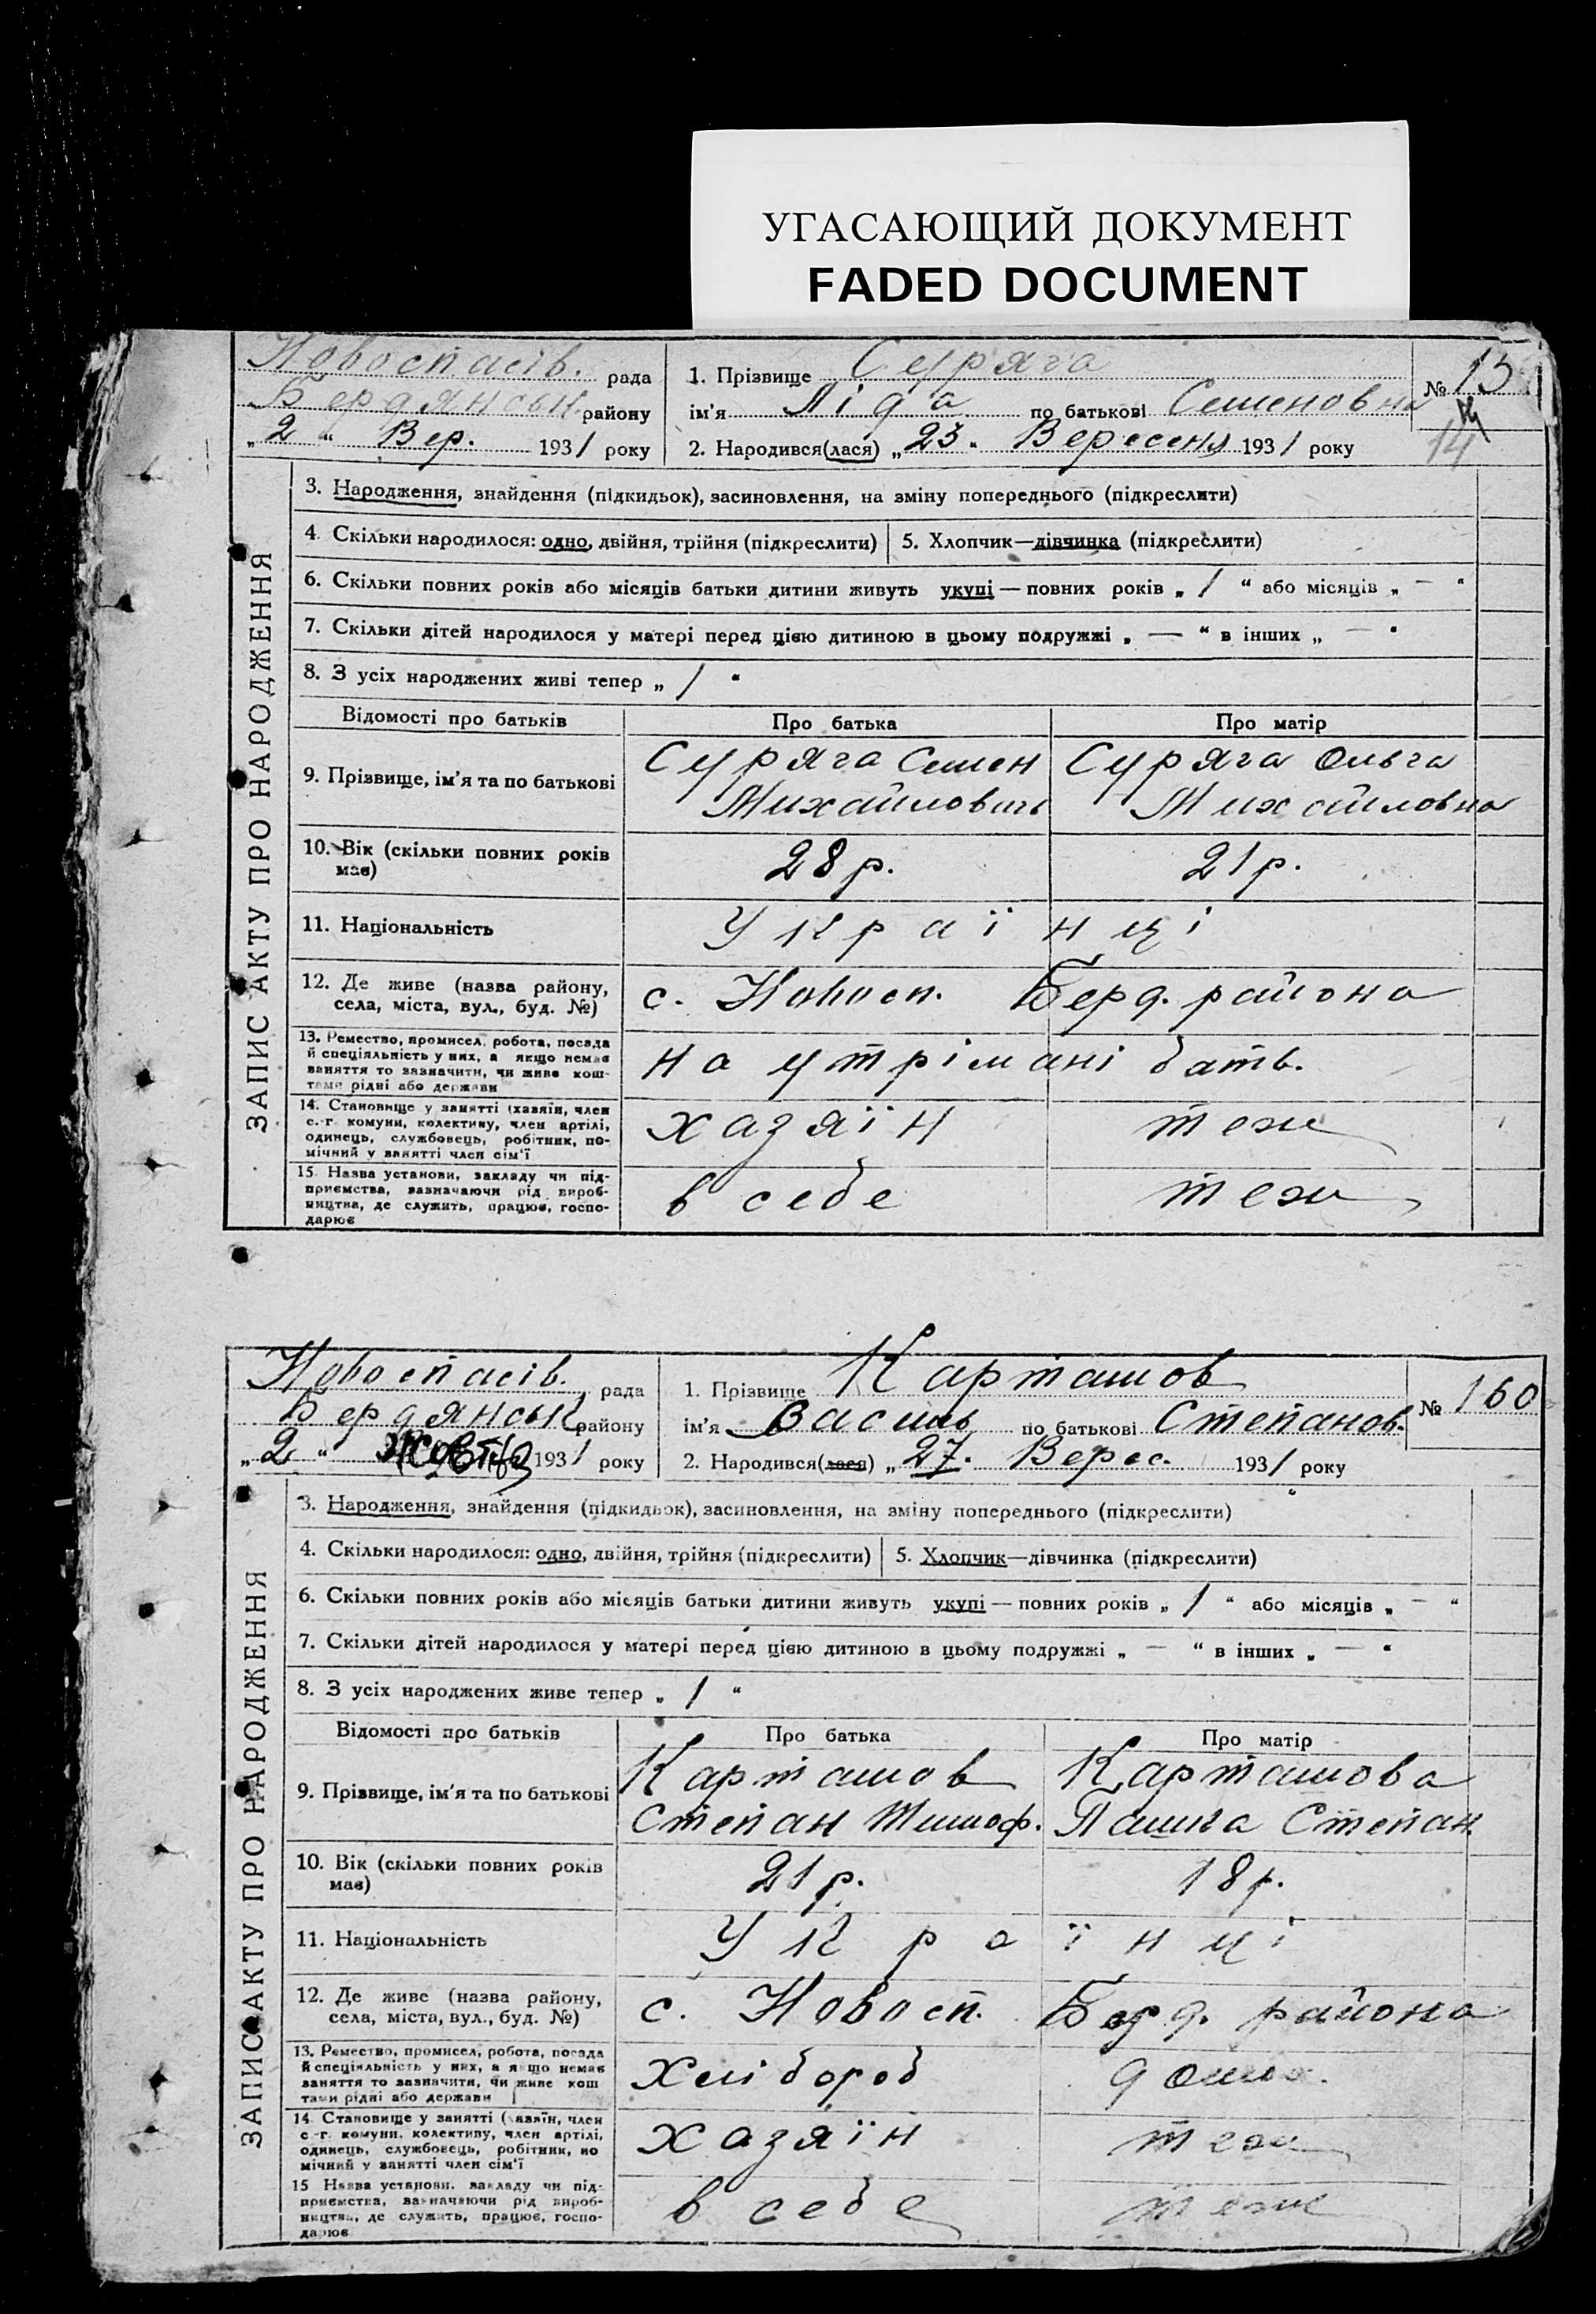 УГАСАЮЩИЙ ДОКУМЕНТ
FADED DOCUMENT
ЗАПИС АКТУ ПРО НАРОДЖЕННЯ
Новоспасів. рада
Бердянськ району
„2“ Вер. 1931 року
1. Прізвище Суряга
ім'я Ліда по батькові Семеновна
2. Народився(лася) „23“ Вересня 1931 року
№ 15
14
3. Народження, знайдення (підкидьок), засиновлення, на зміну попереднього (підкреслити)
4. Скільки народилося: одно, двійня, трійня (підкреслити) 5. Хлопчик—дівчинка (підкреслити)
6. Скільки повних років або місяців батьки дитини живуть укупі — повних років „ 1 “ або місяців „ — “
7. Скільки дітей народилося у матері перед цією дитиною в цьому подружжі „ — “ в інших „ — “
8. З усіх народжених живі тепер „ 1 “
Відомості про батьків Про батька Про матір
9. Прізвище, ім'я та по батькові
Суряга Семен
Михайлович
Суряга Ольга
Михайловна
10. Вік (скільки повних років
має)
28 р. 21 р.
11. Національність Українці
12. Де живе (назва району,
села, міста, вул., буд. №)
с. Новосп. Берд. района
13. Ремество, промисел, робота, посада
й спеціяльність у них, а якщо немає
заняття то зазначити, чи живе кош-
тами рідні або держави
На утрімані бать.
14. Становище у занятті (хазяїн, член
с.-г. комуни, колективу, член артілі,
одинець, службовець, робітник, по-
мічний у занятті член сім'ї
хазяїн теж
15. Назва установи, закладу чи під-
приємства, зазначаючи рід вироб-
ництва, де служить, працює, госпо-
дарює
в себе теж
ЗАПИС АКТУ ПРО НАРОДЖЕННЯ
Новоспасів. рада
Бердянськ району
„2“ Жовтня 1931 року
1. Прізвище Карташов
ім'я Василь по батькові Степанов.
2. Народився(лася) „27“ Верес. 1931 року
№ 160
3. Народження, знайдення (підкидьок), засиновлення, на зміну попереднього (підкреслити)
4. Скільки народилося: одно, двійня, трійня (підкреслити) 5. Хлопчик—дівчинка (підкреслити)
6. Скільки повних років або місяців батьки дитини живуть укупі — повних років „ 1 “ або місяців „ — “
7. Скільки дітей народилося у матері перед цією дитиною в цьому подружжі „ — “ в інших „ — “
8. З усіх народжених живе тепер „ 1 “
Відомості про батьків Про батька Про матір
9. Прізвище, ім'я та по батькові
Карташов
Степан Тимоф.
Карташова
Пашка Степан.
10. Вік (скільки повних років
має)
21 р. 18 р.
11. Національність Українці
12. Де живе (назва району,
села, міста, вул., буд. №)
с. Новосп. Берд. района
13. Ремество, промисел, робота, посада
й спеціяльність у них, а якщо немає
заняття то зазначити, чи живе кош
тами рідні або держави
Хлібороб дома.
14. Становище у занятті (хазяїн, член
с.-г. комуни, колективу, член артілі,
одинець, службовець, робітник, по
мічний у занятті член сім'ї
хазяїн теж
15 Назва установи, закладу чи під-
приємства, зазначаючи рід вироб-
ництва, де служить, працює, госпо-
дарює
в себе теж